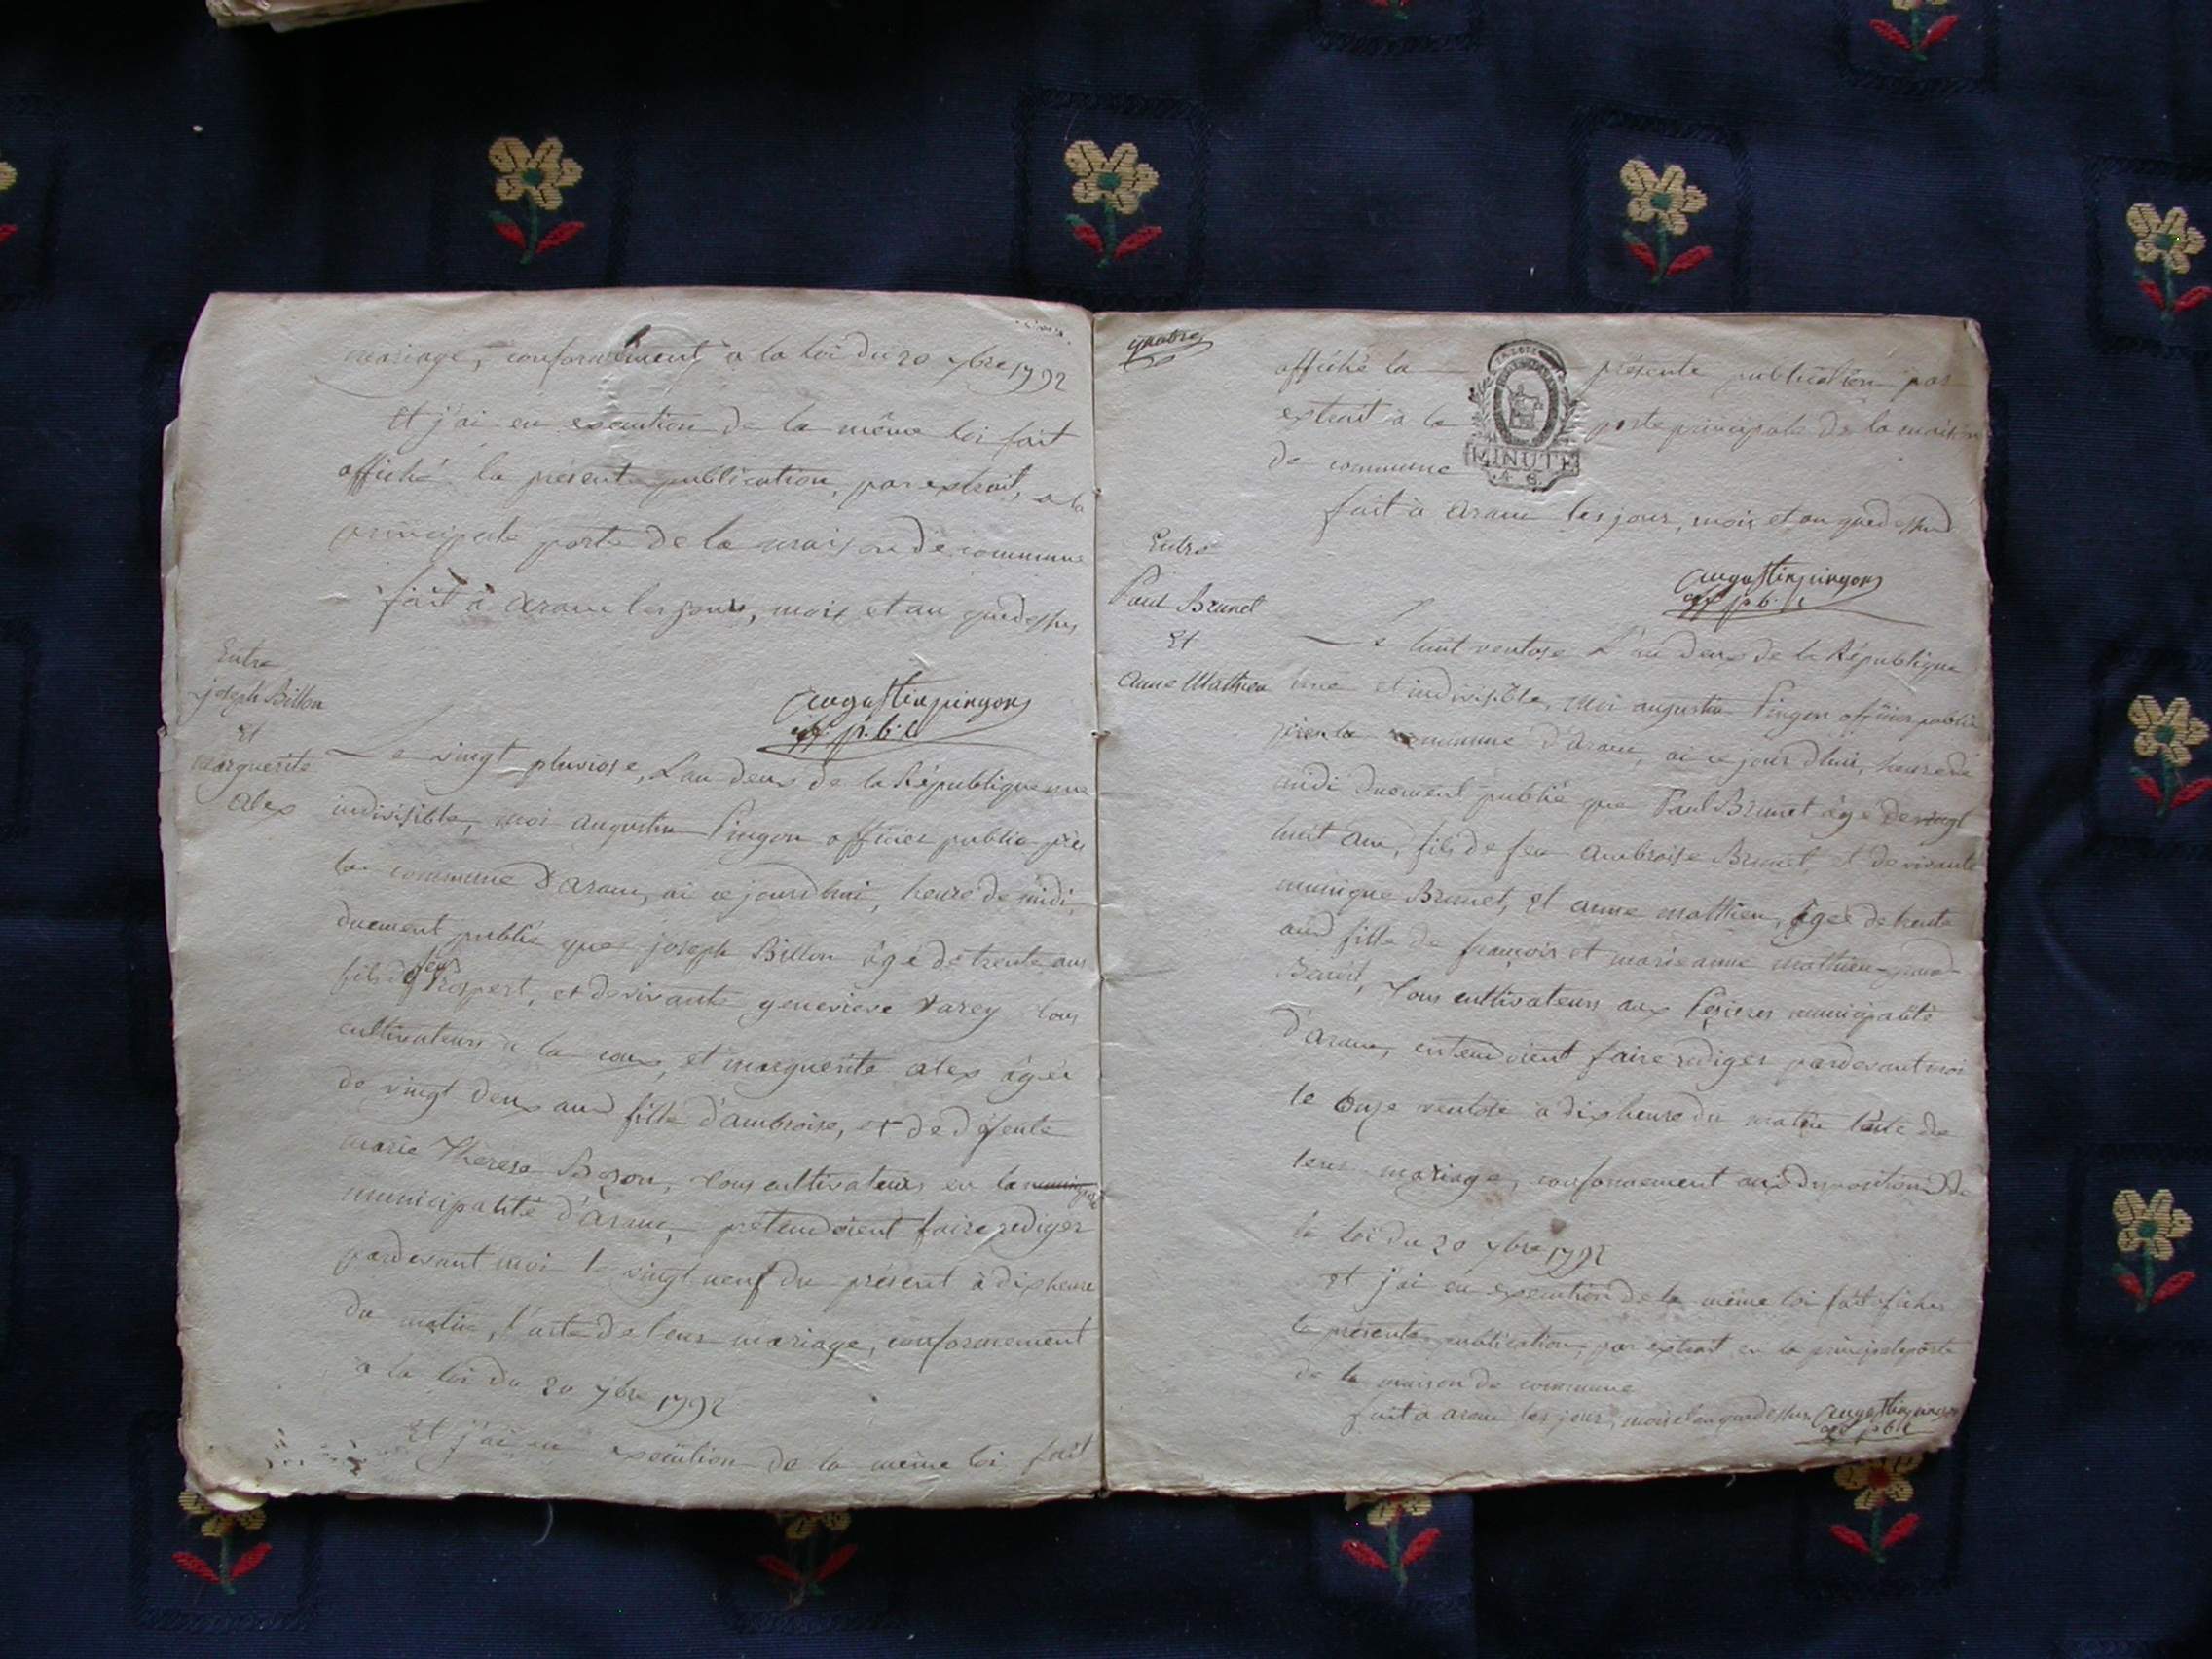 mariage, conformément a la loi du 20 7bre 1792
Et j'ai en execution de la même loi fait
affiché la presente publication, par extrait, a la
principale porte de la maison de commune
fait à aranc les jour, mois et an que dessus
augustin pingon
off. p. b. c
Entre
joseph Billon
Et
marguerite
alex
Le vingt pluviose, L'an deux de la République une
indivisible, moi augustin Pingon officier public près
la commune d'aranc, ai ce jourd'hui, heure de midi,
duement publié que joseph Billon âgé de trente ans
fils de feu Prospert, et de vivante genevieve Varey tous
cultivateurs à la cour, et marguerite alex âgée
de vingt deux ans fille d'ambroise, et de défente
marie Therese Beron, tous cultivateurs en la
municipalité d'aranc, pretendoient faire rediger
pardevant moi le vingt neuf du présent à dix heure
du matin, l'acte de leur mariage, conformement
a la loi du 20 7bre 1792
Et j'ai en execution de la même loi fait
quatre
affiché la présente publication par
extrait à la porte principale de la maison
de commune
MINUTE
4 S.
fait à aranc les jour, mois et an que dessus
augustin pingon
off p. b. c
Entre
Paul Brunet
Et
anne Mathieu
Le huit ventose L'an deux de la République
une et indivisible, moi augustin Pingon officier public
près la commune d'aranc, ai ce jourd'hui, heure de
midi duement publié que Paul Brunet âgé de vingt
huit ans, fils de feu ambroise Brunet, et de vivante
munique Brunet, et anne mathieu, âgée de trente
ans fille de françois et marie anne mathieu
Benoit, tous cultivateurs aux Pezieres municipalité
d'aranc, entendoient faire rediger pardevant moi
le onze ventose à dix heure du matin l'acte de
leur mariage, conformement aux dispositions de
la loi du 20 7bre 1792
Et j'ai en execution de la même loi fait afficher
la présente publication, par extrait en la principale porte
de la maison de commune
fait a aranc les jour, mois et an que dessus augustin pingon
off p b c